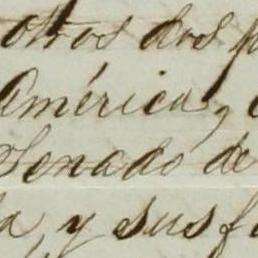 otros dos p
América, 
Senado de
la, y sus f